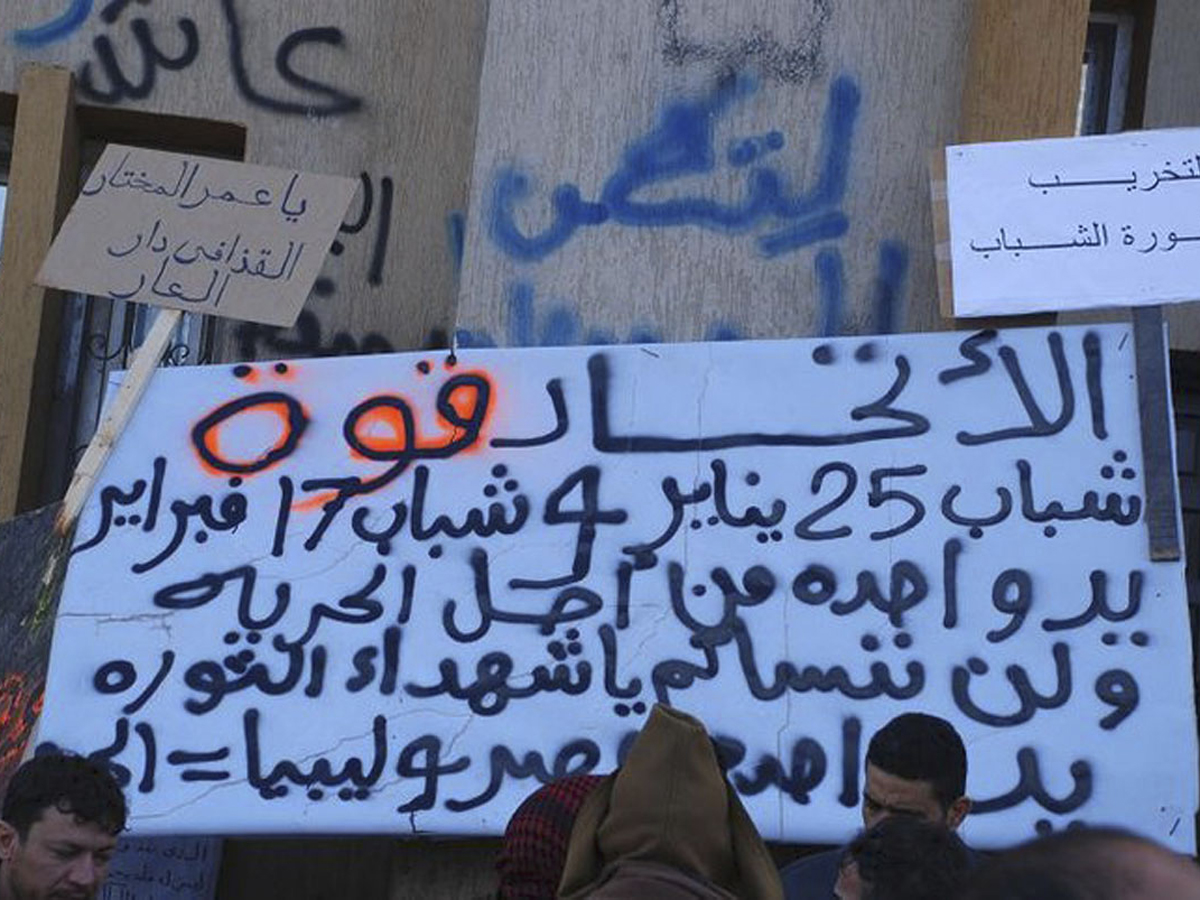 عاش
ليتكن
يا عمر المختار
القذافى دار
العار
لتخريب
ـورة الشباب
الأتحاد قوة
شباب 25 يناير و شباب 17 فبراير
يد واحده من أجل الحريه
ولن ننساكم يا شهداء الثوره
يد
وليبيا =